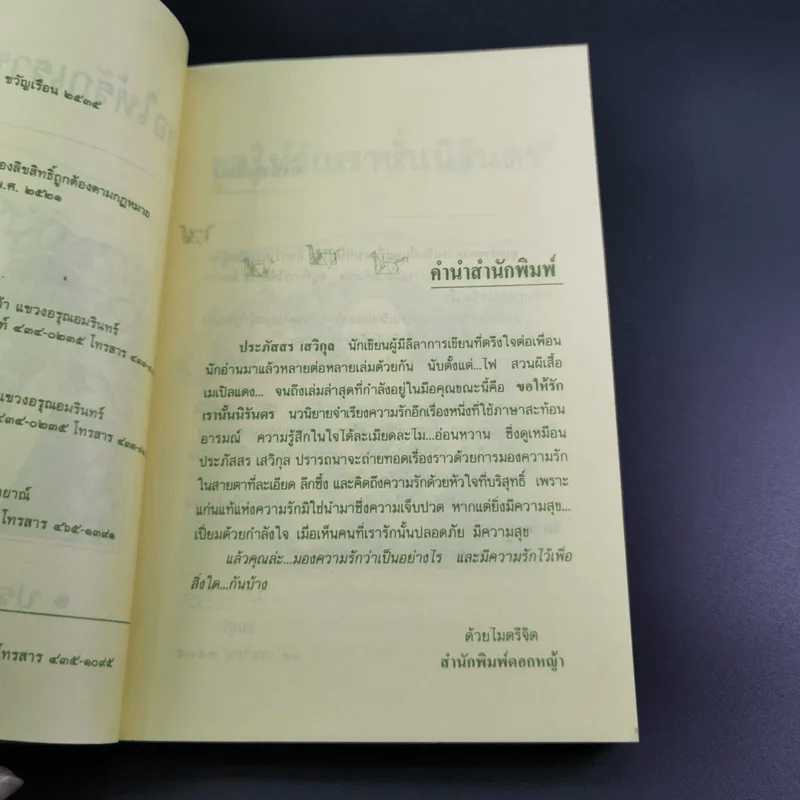 ขวัญเรือน ๒๕๓๕
องลิขสิทธิ์ถูกต้องตามกฎหมาย
พ.ศ. ๒๕๒๑
แขวงอรุณอมรินทร์
๔๓๔-๐๒๓๕ โทรสาร
แขวงอรุณอมรินทร์
๔๓๔-๐๒๓๕ โทรสาร
โทรสาร ๔๖๕-๑๓๙๑
โทรสาร ๔๓๕-๑๐๙๕
คำนำสำนักพิมพ์
ประภัสสร เสวิกุล นักเขียนผู้มีลีลาการเขียนที่ตรึงใจต่อเพื่อน
นักอ่านมาแล้วหลายต่อหลายเล่มด้วยกัน นับตั้งแต่...ไฟ สวนผีเสื้อ
เมเปิลแดง... จนถึงเล่มล่าสุดที่กำลังอยู่ในมือคุณขณะนี้คือ ขอให้รัก
เรานั้นนิรันดร นวนิยายจำเรียงความรักอีกเรื่องหนึ่งที่ใช้ภาษาสะท้อน
อารมณ์ ความรู้สึกในใจได้ละเมียดละไม...อ่อนหวาน ซึ่งดูเหมือน
ประภัสสร เสวิกุล ปรารถนาจะถ่ายทอดเรื่องราวด้วยการมองความรัก
ในสายตาที่ละเอียด ลึกซึ้ง และคิดถึงความรักด้วยหัวใจที่บริสุทธิ์ เพราะ
แก่นแท้แห่งความรักมิใช่นำมาซึ่งความเจ็บปวด หากแต่ยิ่งมีความสุข...
เปี่ยมด้วยกำลังใจ เมื่อเห็นคนที่เรารักนั้นปลอดภัย มีความสุข
แล้วคุณล่ะ...มองความรักว่าเป็นอย่างไร และมีความรักไว้เพื่อ
สิ่งใด...กันบ้าง
ด้วยไมตรีจิต
สำนักพิมพ์ดอกหญ้า